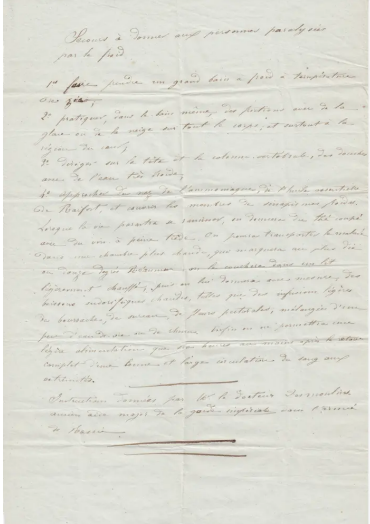 Secours à donner aux personnes paralysées
par le froid.
1º faire prendre un grand bain à froid à température
2º pratiquer, dans le bain même, des frictions avec de la
glace ou de la neige sur tout le corps, et surtout à la
région du cœur,
3º diriger sur la tête et la colonne vertébrale, des douches
avec de l'eau très froide,
4º approcher du nez de l'ammoniaque, de l'huile
de Raifort, et couvrir les membres de sinapismes
Lorsque la vie paraîtra se ranimer, on donnera du thé
avec du vin à peine tiède. On pourra transporter le malade
dans une chambre plus chaude, qui marquera un plus dix
ou douze degrés Réaumur, on le mettra dans un lit
légèrement chauffé, puis on lui donnera avec mesure, des
boissons sudorifiques chaudes, telles que, des infusions légères
de bourrache, de sureau, de fleurs pectorales, mélangées d'un
peu d'eau de vie ou de rhum. Enfin on ne permettra une
légère alimentation que six heures au moins après le retour
complet d'une bonne et large circulation du sang aux
extrémités.
Instructions données par Mr le docteur
ancien aide major de la garde impériale dans l'armée
de Russie.